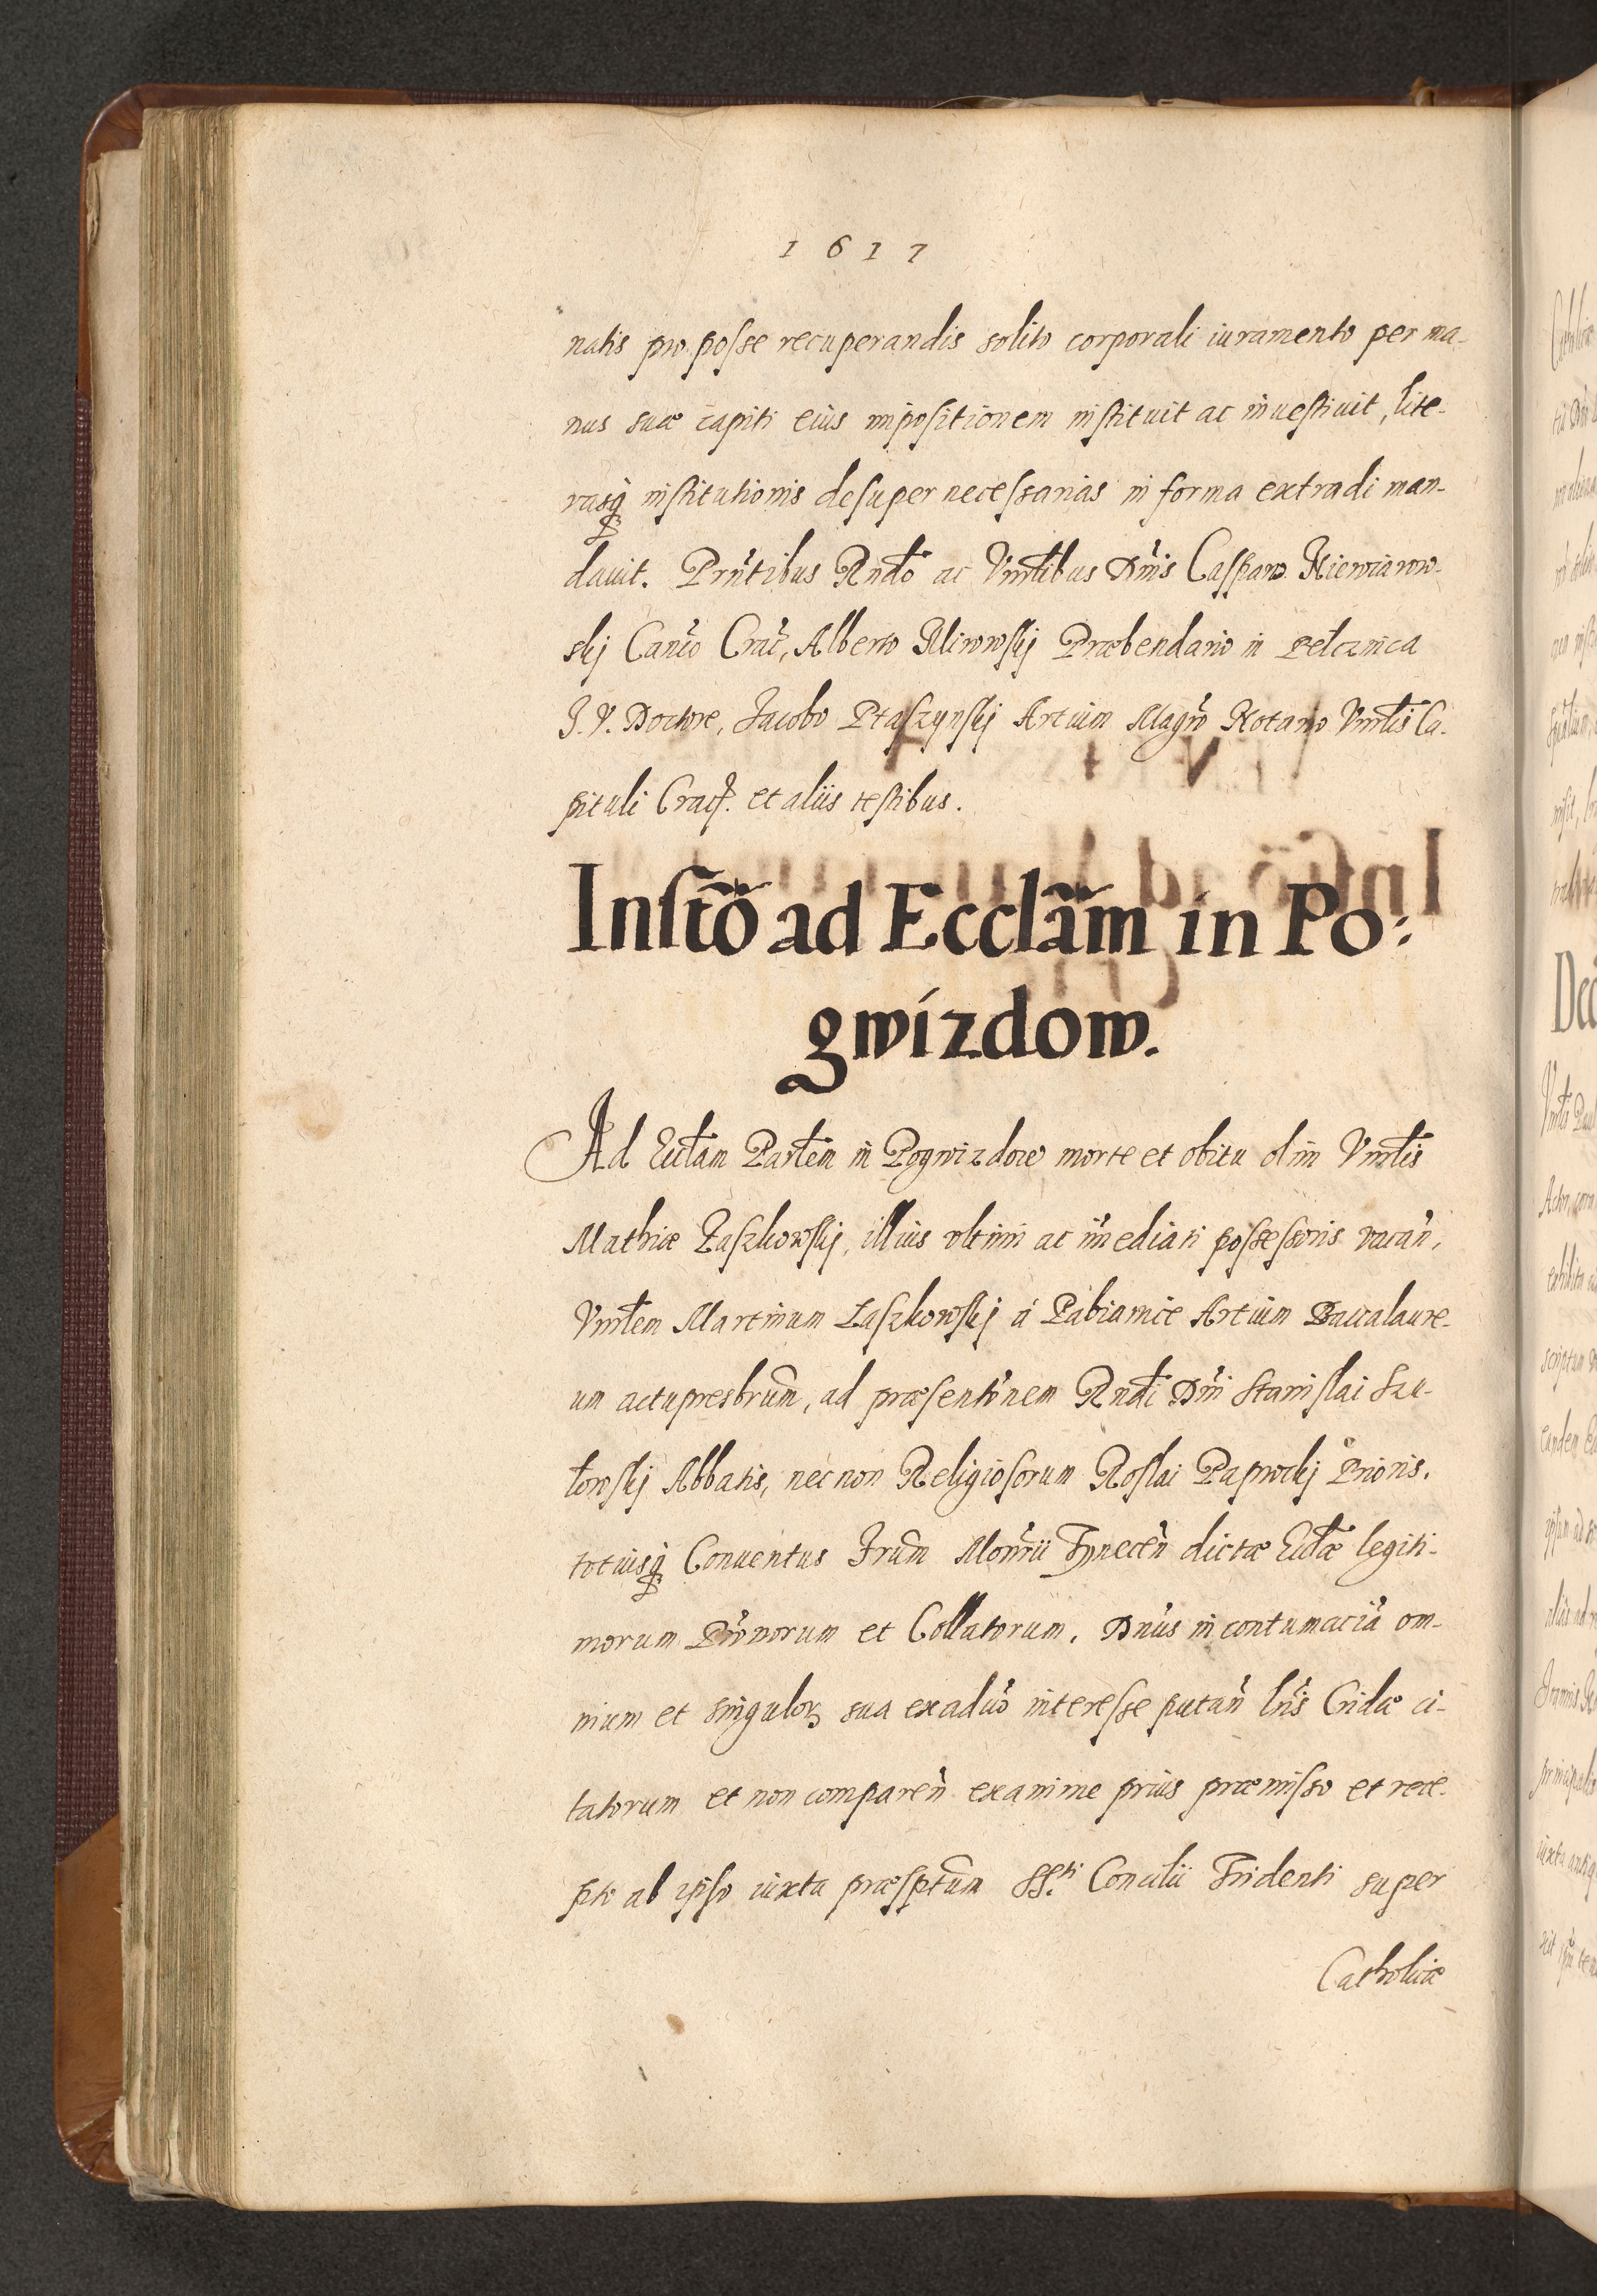 1617
natis pro posse recuperandis solito corporali iuramento per ma-
nus suæ capiti eius impositionem instituit ac inuestiuit, lite-
rasq; institutionis desuper necessarias in forma extradi man-
dauit. Pñtibus Rndo ac Vnrlibus Dnis Casparo Niewiarow-
skij Canco Crac, Alberto Miwowskij Præbendario in Pelcznica
I. V. Doctore, Jacobo Ptaszynskij Artium Magro Notario Vnrlis Ca-
pituli Crac. et aliis testibus.
Instõ ad Ecclãm in Po:
gwizdow.
Ad Ecclam Parlem in Pogwizdow morte et obitu olim Vnrlis
Mathiæ Łaszkowskij, illius vltimi ac im̃ediati possessoris vacañ,
Vnrlem Martinum Łaszkowskij a Pabianice Artium Baccalaure-
um actupresbrum, ad præsentõnem Rndi Dñi Stanislai Szu-
łowskij Abbatis, nec non Religiosorum Roslai Paprockij Prioris,
totiusq; Conuentus Frum Monrii Tynecen̄ dictæ Ecclæ legiti-
morum Pronorum et Collatorum, Dnus in contumaciã om-
nium et singulor sua exaduo interesse putañ lris Cridæ ci-
tatorum et non compareñ examine prius præmisso et rece-
pto ab ipso iuxta præsptum SS.ti Concilii Tridenti super
Catholicæ